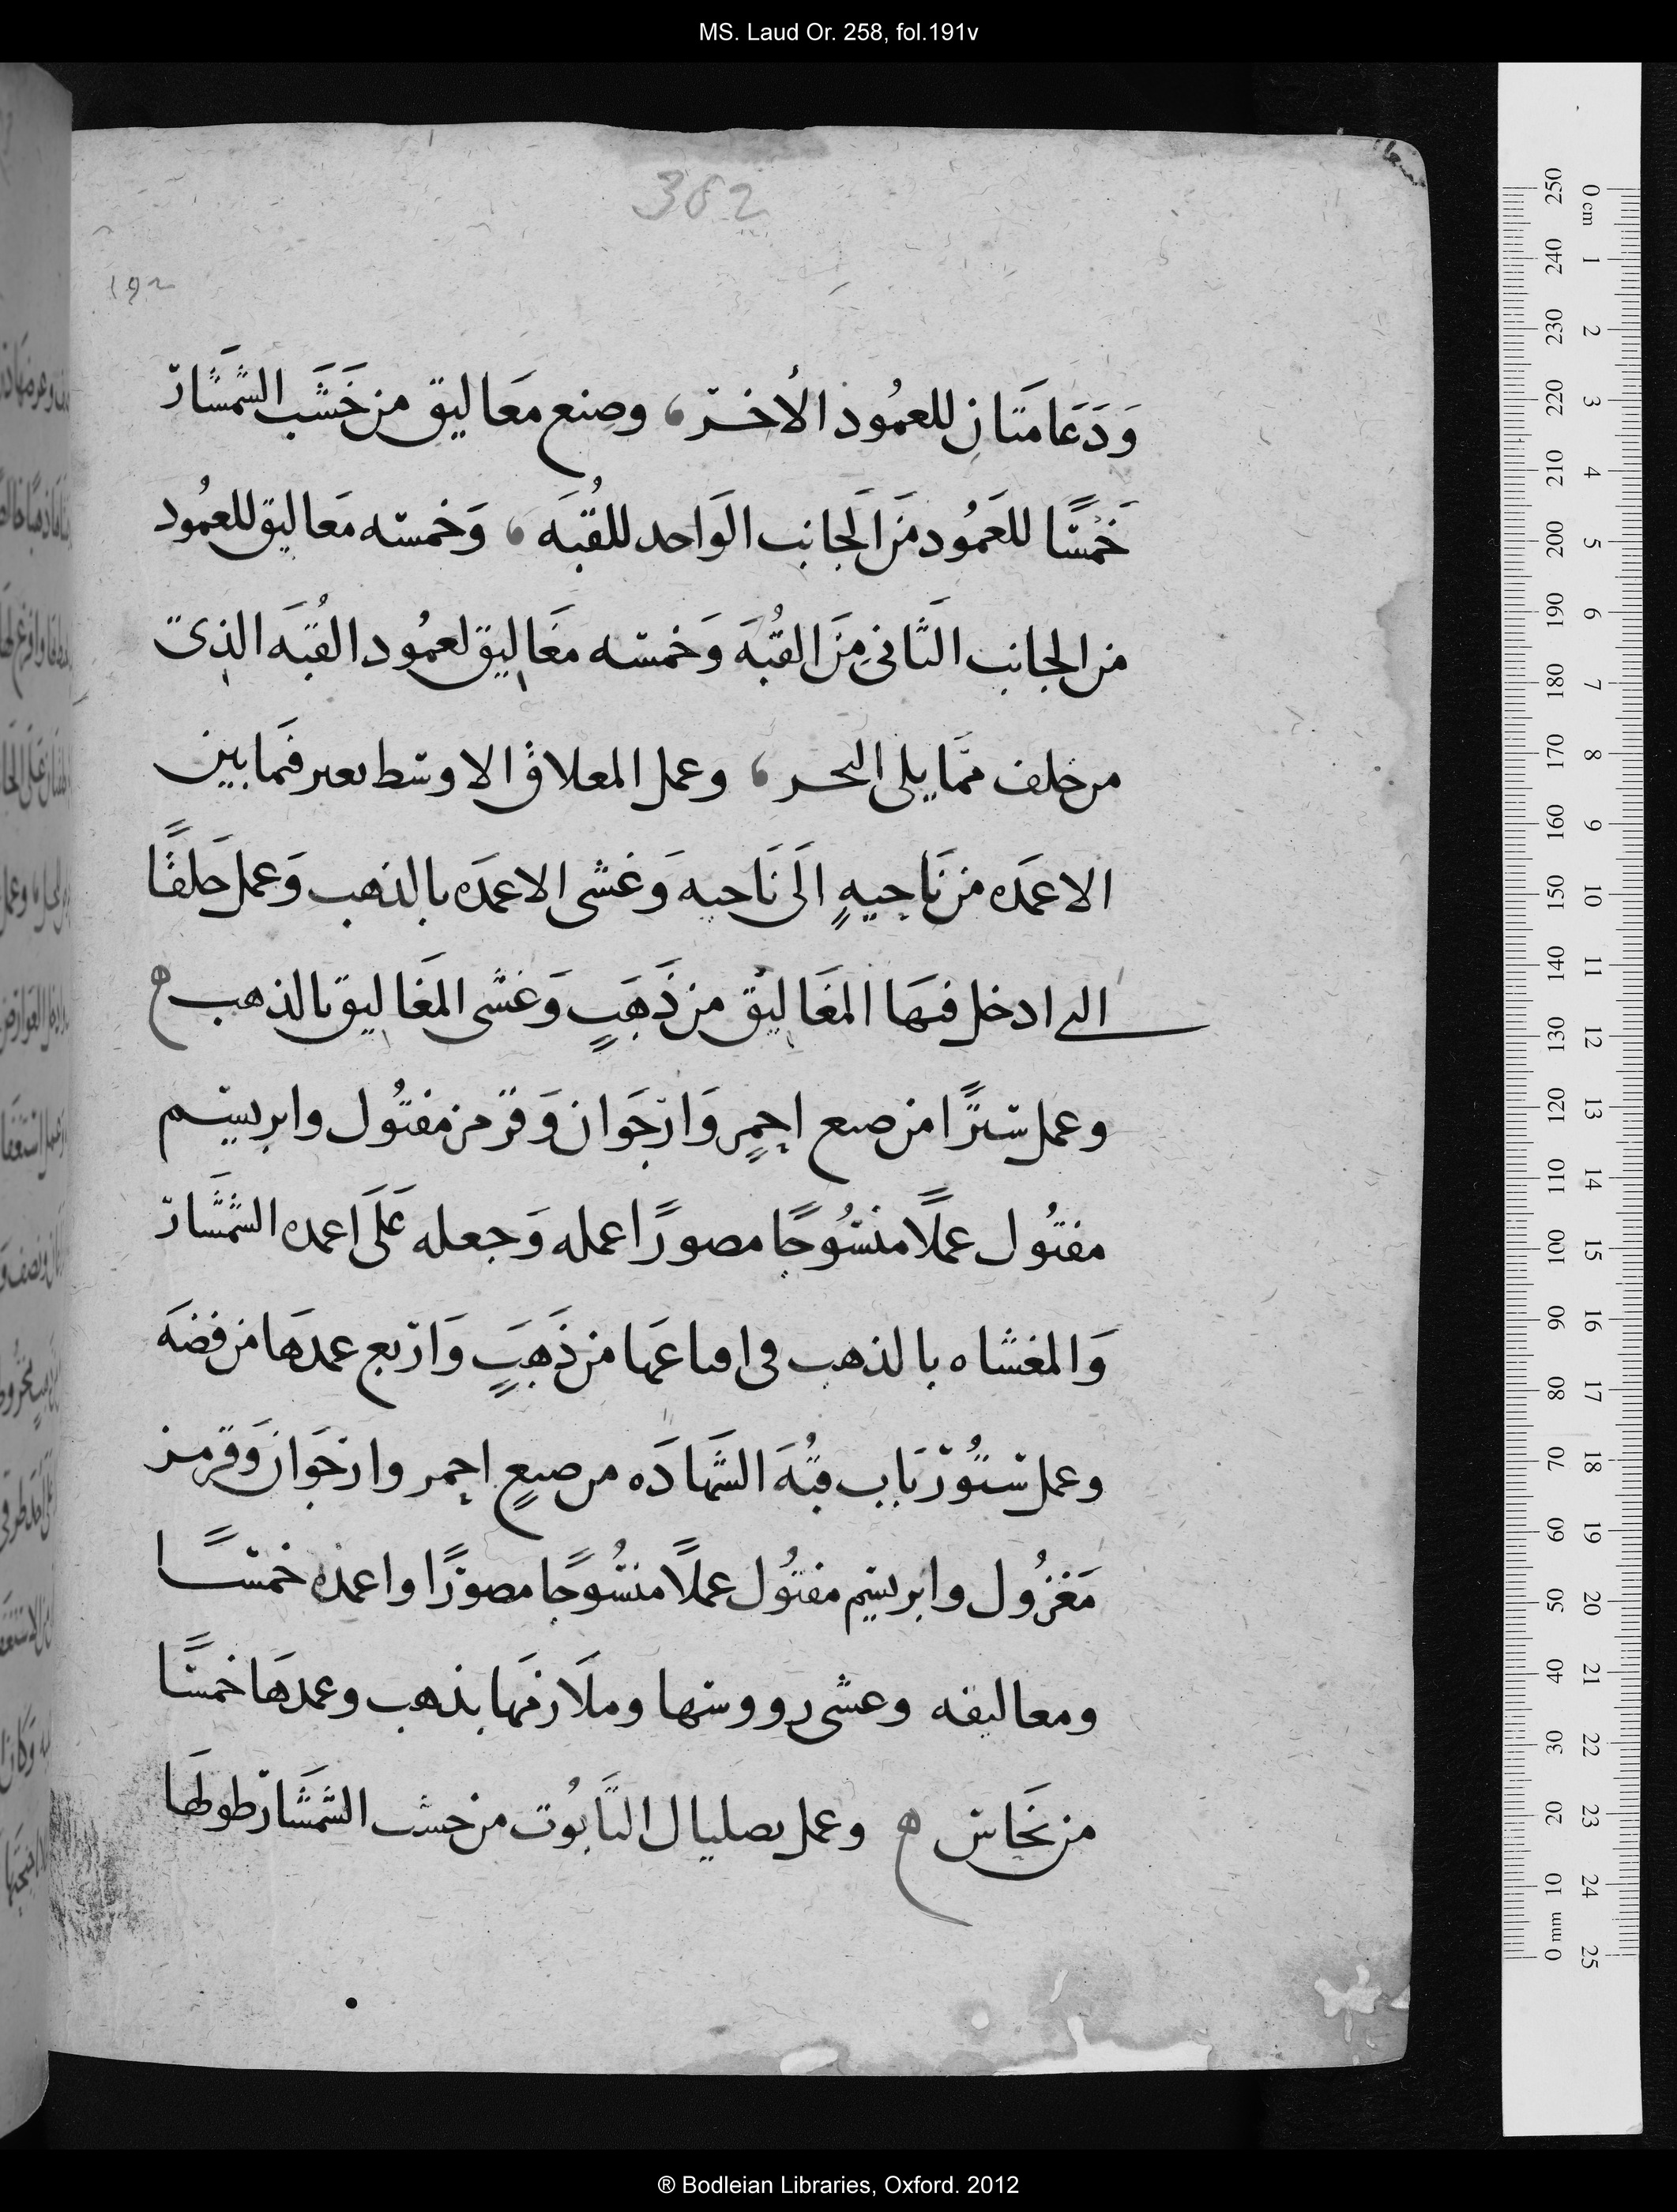 MS. Laud Or. 258, fol.191v
382
192
وَدَعَامَتَان للعمُود الأخر، وصنع مَعَاليق من خَشَب الشَّمشَار
خَمْسًا للعَمُود مَن الجَانِب الوَاحد للقُبَه، وَخمسه مَعَاليق للعمُود
من الجانِب الثَاني مِنَ القُبَه وَخمسه مَغَاليق لعمُود القُبَه الذي
من خلف ممَا يلي البحر، وعمل المعلاق الاوسط يعبر فَمَا بين
الاعمَده من نَاحيهٍ الَى نَاحيه وَغشى الاعمَده بالذهب وَعمل حَلقًا
التي ادخل فيهَا المغَاليق من ذَهَبٍ وَغشى المَغَاليق بالذهب
وعمل سترًا من صبع احمرٍ وَارجَوان وَقرمز مفتُول وابريسم
مفتُول عملًا منسُوجًا مصورًا عمله وَجعله عَلَى اعمده الشَّمشَار
وَالمغشاه بالذهب في اصاعها من ذَهَبٍ وَاربع عمدهَا من فضَه
وعمل ستُور بَاب قبُهَ الشَهَادَه من صبعٍ احمر وارجَوان وَقرمز
مَغزُول وابريسم مفتُول عملًا منسُوجًا مصورًا واعمده خمسًا
ومعاليقه وعشى رووسها وملَازمَها بذهب وعمدهَا خمسًا
من نحَاس وعمل بصليال التَابُوت من خشب الشَّمشَار طولهَا
0 cm 1 2 3 4 5 6 7 8 9 10 11 12 13 14 15 16 17 18 19 20 21 22 23 24 25
250 240 230 220 210 200 190 180 170 160 150 140 130 120 110 100 90 80 70 60 50 40 30 20 10 0 mm
® Bodleian Libraries, Oxford. 2012